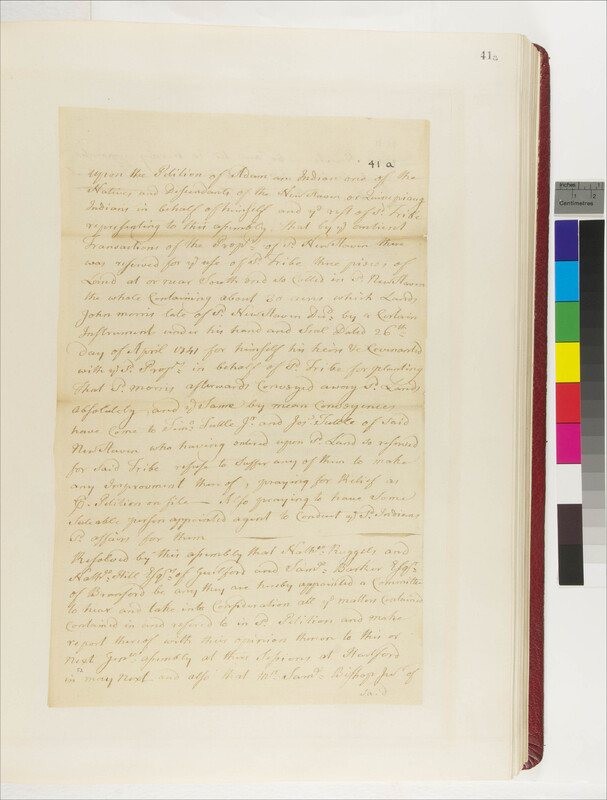 41a
41 a
Upon the Petition of Adam an Indian one of the
Natives and Descendants of the New Haven or Quinnipiaug
Indians in behalf of himself and ye rest of sd. Tribe
representing to this assembly, that by ye antient
Transactions of the Propts. of sd New Haven there
was reserved for ye use of sd Tribe three pieces of
Land at or near South end so Called in sd. New Haven
the whole Containing about 30 acres which Lands
John Morris late of sd. New Haven Decd. by a Certain
Instrument under his hand and Seal Dated 26th
day of April 1741 for himself his heirs &c Covenanted
with ye sd. Props. in behalf of sd. Tribe for planting
That sd. Morris afterwards Conveyd away sd. Lands
absolutely, and ye Same by mean Conveyences
have Come to Timo. Tuttle Jr. and Jos. Tuttle of Said
New Haven who having entered upon sd. Land so reserved
for said Tribe refuse to Suffer any of them to make
any Improvment thereof, praying for Relief as
pr. Petition on file — Also praying to have Some
Suteable person appointed agent to Conduct ye sd. Indians
sd. affairs for them
Resolved by this assembly that Nathll. Ruggels and
Nathll. Hill Esqrs. of Guilford and Saml. Barker Esqr.
of Branford be and they are hereby appointed a Committee
to hear and take into Consideration all ye matters Contained
Contained in and referd to in sd Petition and make
report thereof with their opinion thereon to this or
Next Genll. assembly at their Sessions at Hartford
in may Next and also that Mr. Saml. Bishop Junr. of
said
Inches
1
2
Centimetres